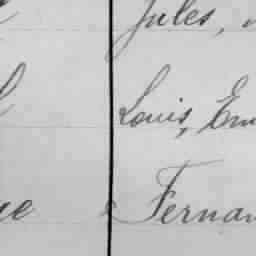 Jules,
Louis, Em
ue Fernan